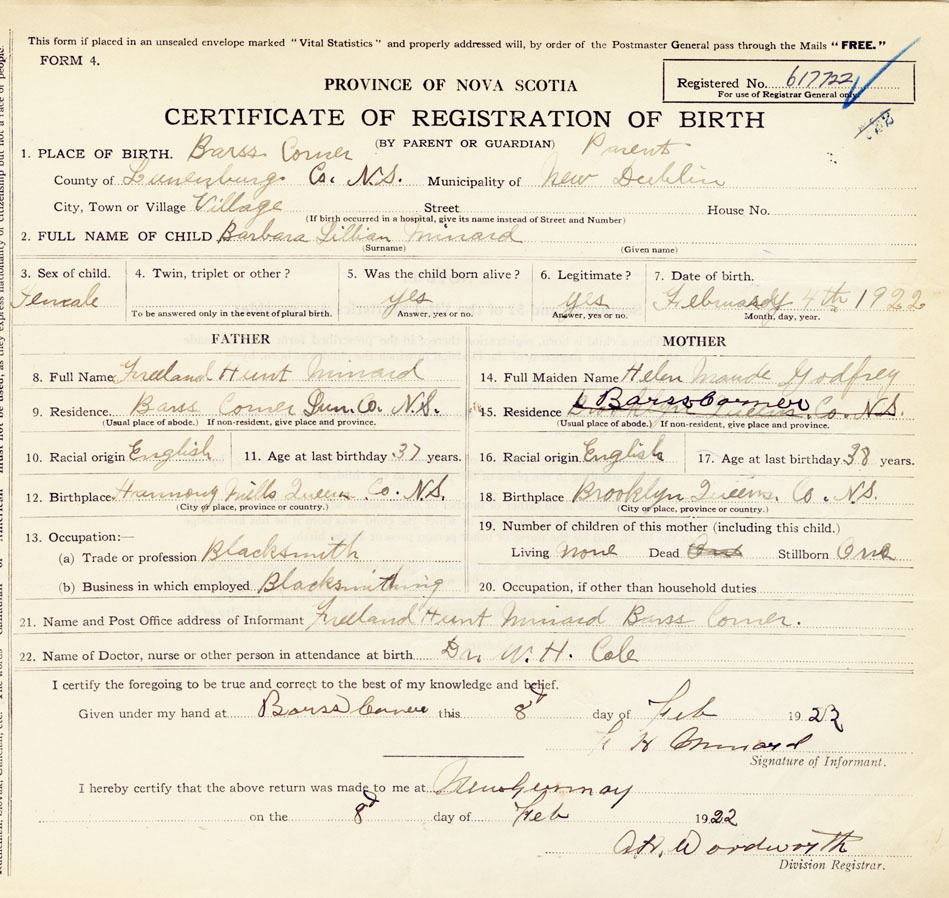 This form if placed in an unsealed envelope marked "Vital Statistics" and properly addressed will, by order of the Postmaster General pass through the Mails "FREE."
FORM 4.
Registered No. 617722
For use of Registrar General only.
PROVINCE OF NOVA SCOTIA
CERTIFICATE OF REGISTRATION OF BIRTH
(BY PARENT OR GUARDIAN) Parent
1. PLACE OF BIRTH. Barss Corner
County of Lunenburg Co. N.S. Municipality of New Dublin
City, Town or Village Village Street House No.
(If birth occurred in a hospital, give its name instead of Street and Number)
2. FULL NAME OF CHILD Barbara Lillian Minard
(Surname) (Given name)
3. Sex of child. 4. Twin, triplet or other? 5. Was the child born alive? 6. Legitimate? 7. Date of birth.
Female yes yes February 4th 1922
To be answered only in the event of plural birth. Answer, yes or no. Answer, yes or no. Month, day, year.
FATHER
8. Full Name Freeland Hunt Minard
9. Residence Barss Corner Lun. Co. N.S.
(Usual place of abode.) If non-resident, give place and province.
10. Racial origin English 11. Age at last birthday 37 years.
12. Birthplace Harmony Mills Queens Co. N.S.
(City or place, province or country.)
13. Occupation:—
(a) Trade or profession Blacksmith
(b) Business in which employed Blacksmithing
MOTHER
14. Full Maiden Name Helen Maude Godfrey
15. Residence Barss Corner Brooklyn Queens Co. N.S.
(Usual place of abode.) If non-resident, give place and province.
16. Racial origin English 17. Age at last birthday 38 years.
18. Birthplace Brooklyn Queens Co. N.S.
(City or place, province or country.)
19. Number of children of this mother (including this child.)
Living none Dead One Stillborn One
20. Occupation, if other than household duties
21. Name and Post Office address of Informant Freeland Hunt Minard Barss Corner.
22. Name of Doctor, nurse or other person in attendance at birth Dr. W. H. Cole
I certify the foregoing to be true and correct to the best of my knowledge and belief.
Given under my hand at Barss Corner this 8th day of Feb 1922
F H Minard
Signature of Informant.
I hereby certify that the above return was made to me at New Germany
on the 8th day of Feb 1922
Wordworth
Division Registrar.